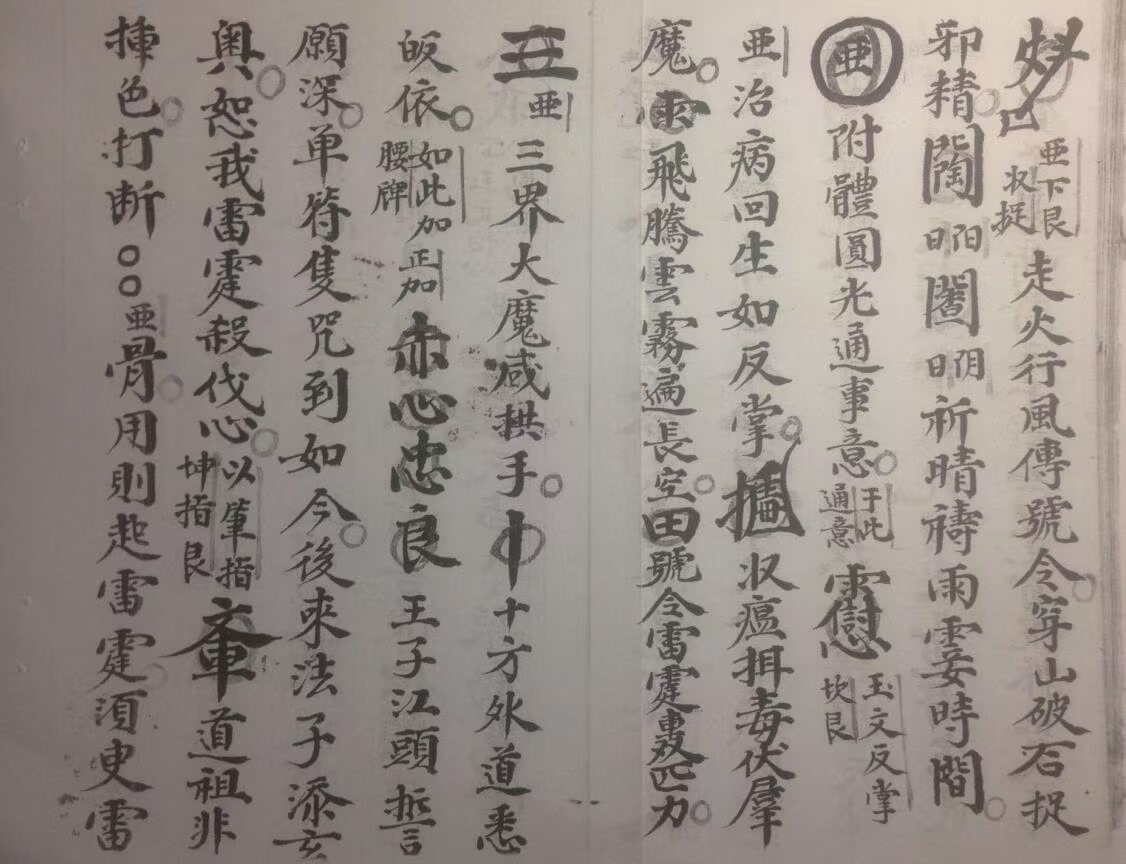 亜下艮
收捉
走火行風傳號令穿山破石捉
邪精閹䦧祈晴禱雨霎時間
亜附體圓光通事意
于此
通意
玉文反掌
坎艮
亜治病回生如反掌
收瘟揖毒伏群
魔
飛騰雲霧遍長空田號令雷霆書㸚匹力
亜三界大魔咸拱手
十方外道悉
皈依
如此加正加
腰牌
赤心忠良王子江頭誓
願深单符隻咒到如今後來法子添玄
奥恕我雷霆殺伐心
以肇指
坤指艮
道祖非
捶色打断亜骨用則起雷霆須臾雷